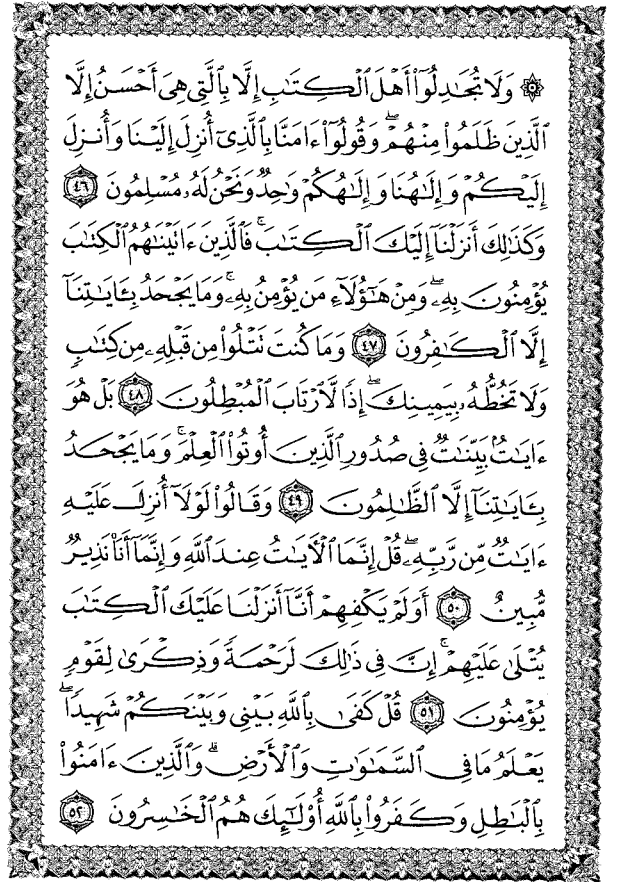 ۞ وَلَا تُجَٰدِلُوٓا۟ أَهْلَ ٱلْكِتَٰبِ إِلَّا بِٱلَّتِى هِىَ أَحْسَنُ إِلَّا
ٱلَّذِينَ ظَلَمُوا۟ مِنْهُمْ ۖ وَقُولُوٓا۟ ءَامَنَّا بِٱلَّذِىٓ أُنزِلَ إِلَيْنَا وَأُنزِلَ
إِلَيْكُمْ وَإِلَٰهُنَا وَإِلَٰهُكُمْ وَٰحِدٌ وَنَحْنُ لَهُۥ مُسْلِمُونَ ٤٦
وَكَذَٰلِكَ أَنزَلْنَآ إِلَيْكَ ٱلْكِتَٰبَ ۚ فَٱلَّذِينَ ءَاتَيْنَٰهُمُ ٱلْكِتَٰبَ
يُؤْمِنُونَ بِهِۦ ۖ وَمِنْ هَٰٓؤُلَآءِ مَن يُؤْمِنُ بِهِۦ ۚ وَمَا يَجْحَدُ بِـَٔايَٰتِنَآ
إِلَّا ٱلْكَٰفِرُونَ ٤٧ وَمَا كُنتَ تَتْلُوا۟ مِن قَبْلِهِۦ مِن كِتَٰبٍ
وَلَا تَخُطُّهُۥ بِيَمِينِكَ ۖ إِذًا لَّٱرْتَابَ ٱلْمُبْطِلُونَ ٤٨ بَلْ هُوَ
ءَايَٰتٌۢ بَيِّنَٰتٌ فِى صُدُورِ ٱلَّذِينَ أُوتُوا۟ ٱلْعِلْمَ ۚ وَمَا يَجْحَدُ
بِـَٔايَٰتِنَآ إِلَّا ٱلظَّٰلِمُونَ ٤٩ وَقَالُوا۟ لَوْلَآ أُنزِلَ عَلَيْهِ
ءَايَٰتٌ مِّن رَّبِّهِۦ ۖ قُلْ إِنَّمَا ٱلْءَايَٰتُ عِندَ ٱللَّهِ وَإِنَّمَآ أَنَا۠ نَذِيرٌ
مُّبِينٌ ٥٠ أَوَلَمْ يَكْفِهِمْ أَنَّآ أَنزَلْنَا عَلَيْكَ ٱلْكِتَٰبَ
يُتْلَىٰ عَلَيْهِمْ ۚ إِنَّ فِى ذَٰلِكَ لَرَحْمَةً وَذِكْرَىٰ لِقَوْمٍ
يُؤْمِنُونَ ٥١ قُلْ كَفَىٰ بِٱللَّهِ بَيْنِى وَبَيْنَكُمْ شَهِيدًا ۖ
يَعْلَمُ مَا فِى ٱلسَّمَٰوَٰتِ وَٱلْأَرْضِ ۗ وَٱلَّذِينَ ءَامَنُوا۟
بِٱلْبَٰطِلِ وَكَفَرُوا۟ بِٱللَّهِ أُو۟لَٰٓئِكَ هُمُ ٱلْخَٰسِرُونَ ٥٢